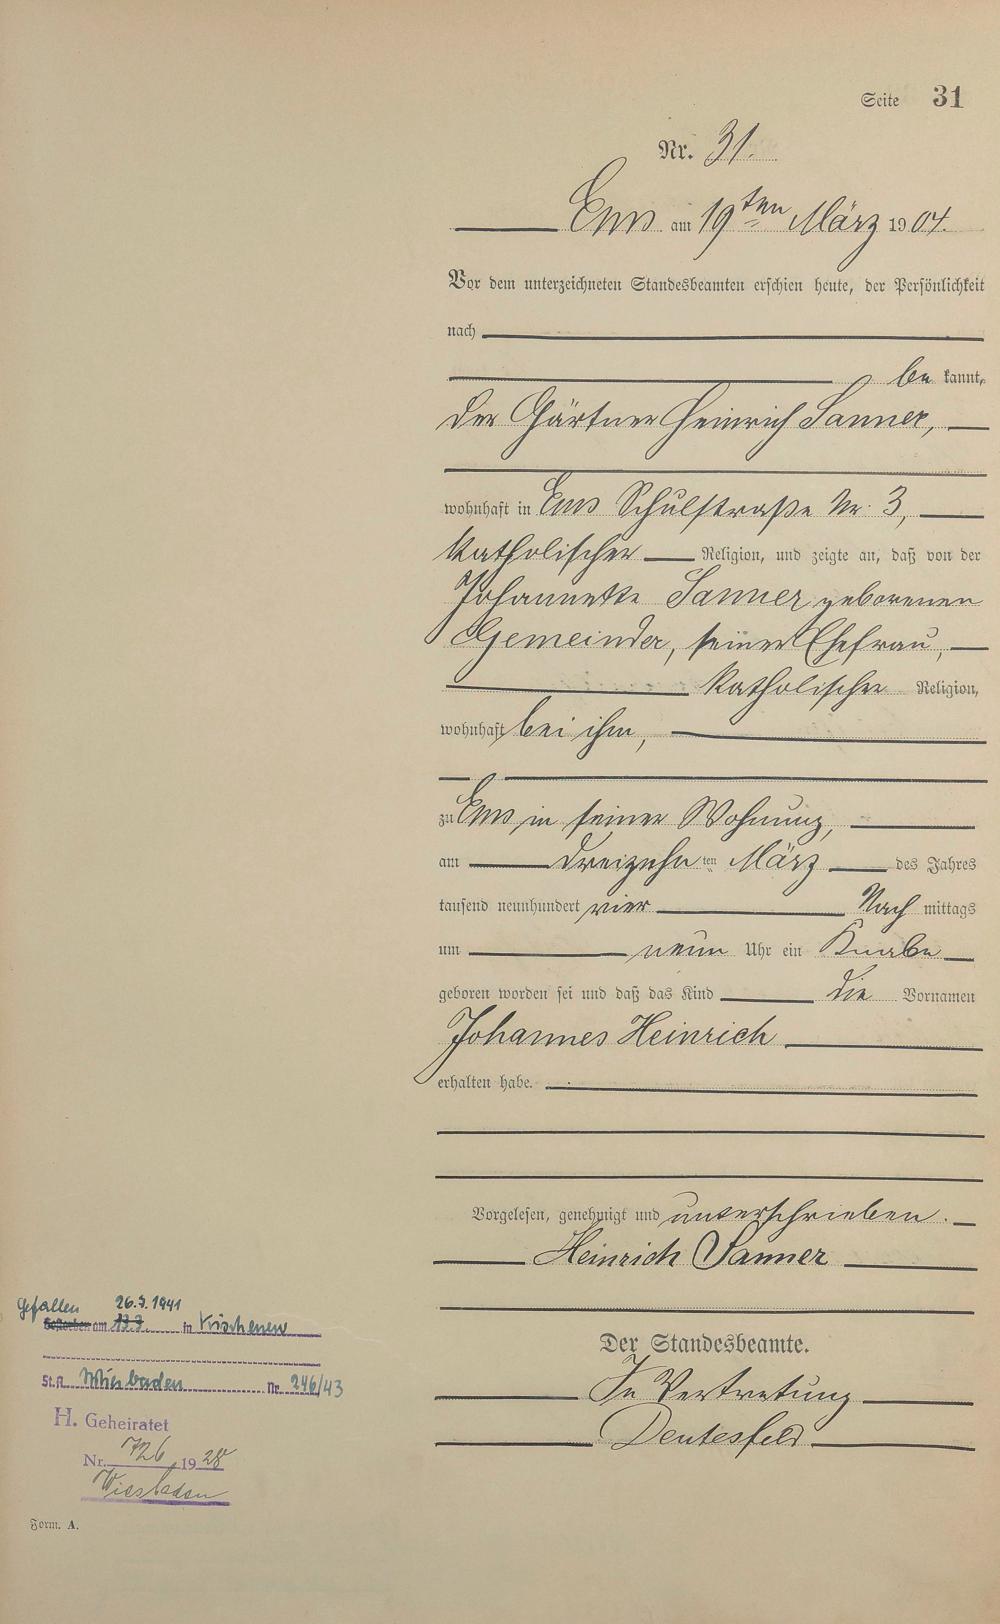 Seite 31
Nr. 31.
Ems am 19ten März 1904.
Vor dem unterzeichneten Standesbeamten erschien heute, der Persönlichkeit
nach
be kannt,
der Gärtner Heinrich Sanner,
wohnhaft in Ems Schulstraße Nr. 3,
katholischer Religion, und zeigte an, daß von der
Johannette Sanner geborenen
Gemeinder, seiner Ehefrau,
katholischer Religion,
wohnhaft bei ihm,
zu Ems in seiner Wohnung,
am dreizehn ten März des Jahres
tausend neunhundert vier Nach mittags
um neun Uhr ein Knabe
geboren worden sei und daß das Kind die Vornamen
Johannes Heinrich
erhalten habe.
Vorgelesen, genehmigt und unterschrieben.
Heinrich Sanner
Der Standesbeamte.
In Vertretung
Deutesfeld
Gefallen 26.7.1941
Gestorben am 13.7. in
St.A. Wiesbaden Nr. 246/43
H. Geheiratet
Nr. 726 1928
Wiesbaden
Form. A.